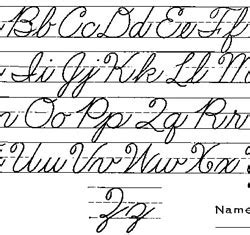 Bb Cc Dd Ee Ff
Ii Jj Kk Ll M
n Oo Pp Qq Rr
Uu Vv Ww Xx
Zz
Name